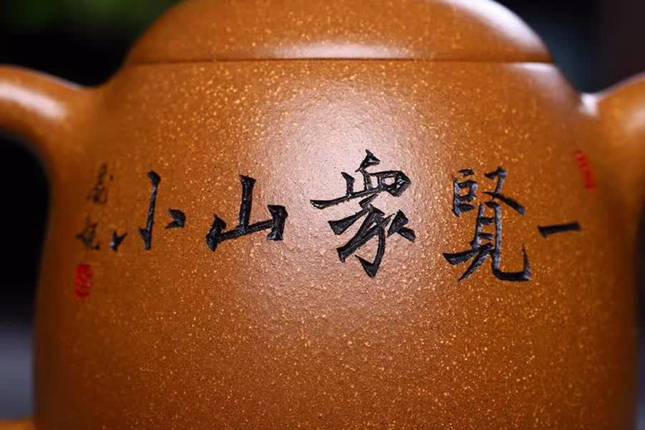 一覽衆山小